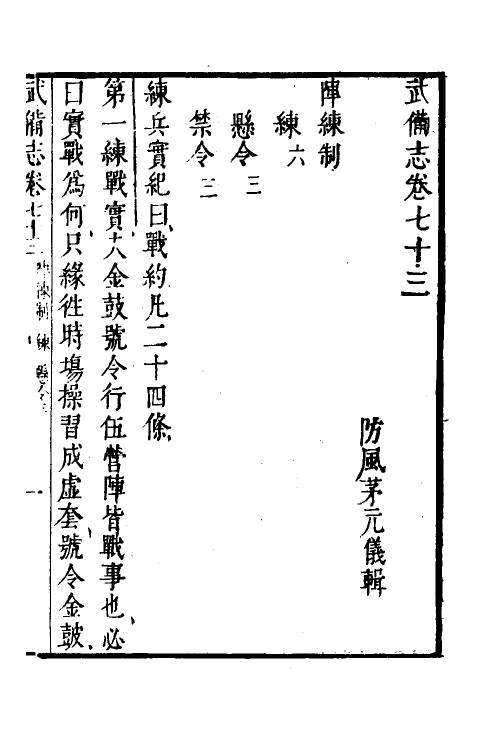 武備志卷七十三
防風茅元儀輯
陣練制
練六
懸令三
禁令三
練兵實紀曰戰約凡二十四條
第一練戰實夫金鼓號令行伍營陣皆戰事也必
曰實戰爲何只緣徃時塲操習成虛套號令金鼓
武備志卷七十三 陣練制 練 懸令三 一